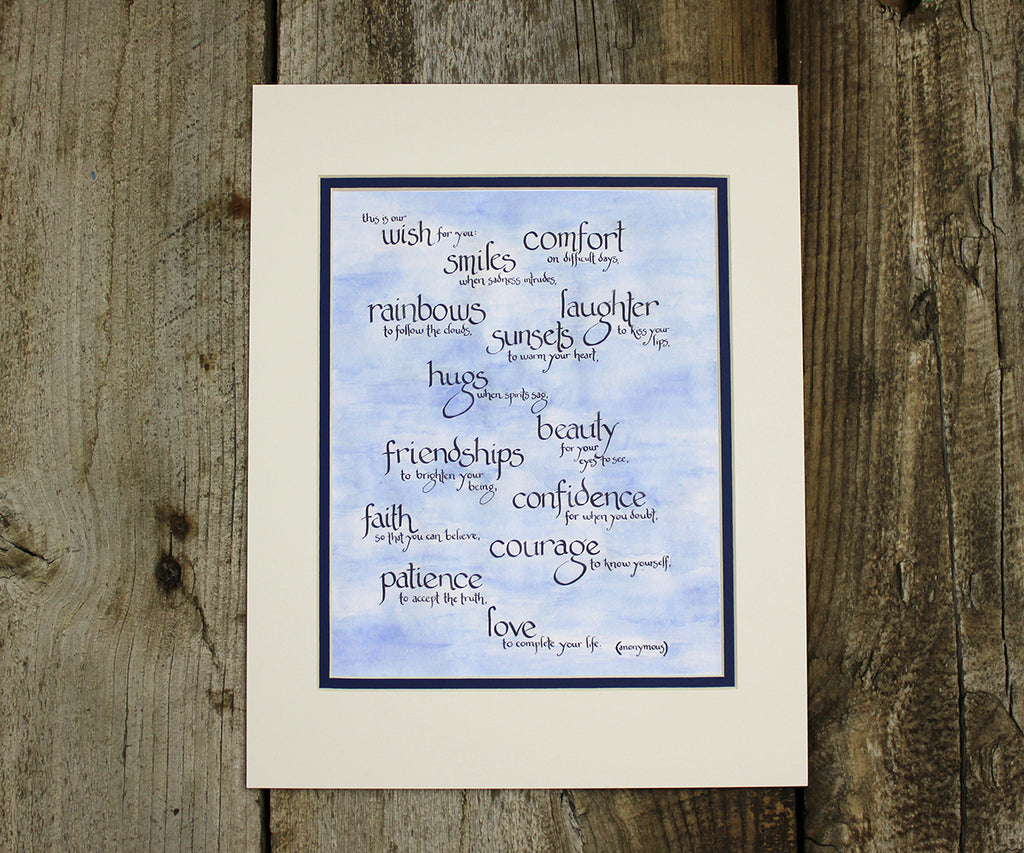 this is our
wish for you:
comfort
on difficult days,
smiles
when sadness intrudes,
rainbows
to follow the clouds,
laughter
to kiss your
lips,
sunsets
to warm your heart,
hugs
when spirits sag,
beauty
for your
eyes to see,
friendships
to brighten your
being,
confidence
for when you doubt,
faith
so that you can believe,
courage
to know yourself,
patience
to accept the truth,
love
to complete your life. (anonymous)